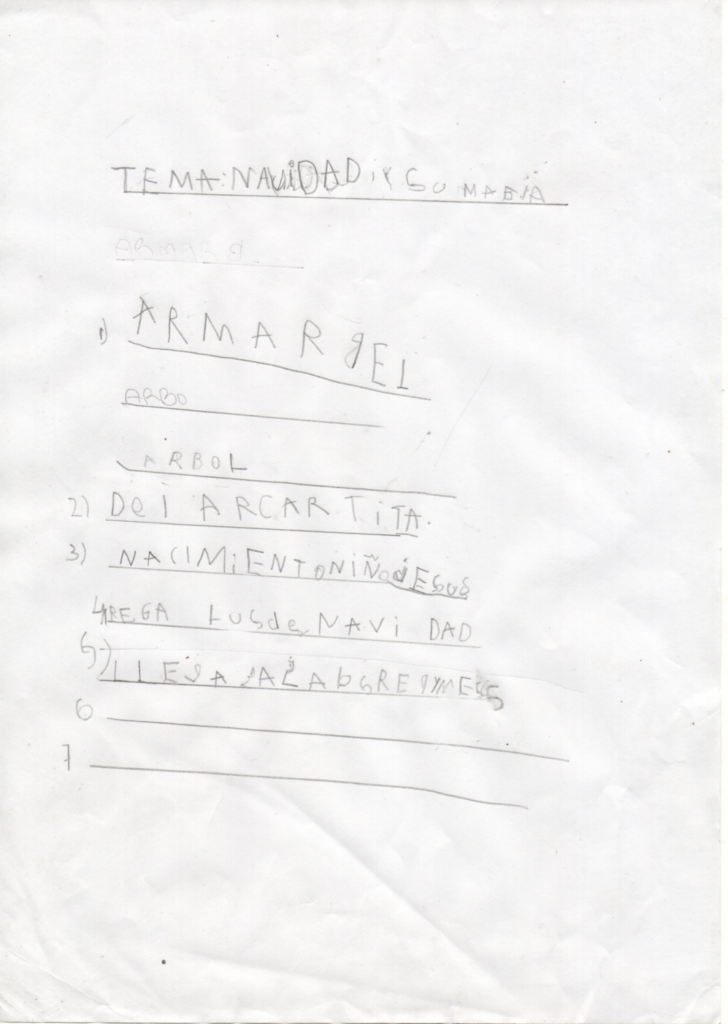 TEMA: NAViDAD iY SU MAGiA
ARMAR g
1) ARMAR gEL
ARBO
ARBOL
2) DEJARCARTiTA.
3) NACIMiENTONiÑOJESUS
4REGA LUSde NAViDAD
5) LLEGA
6
7